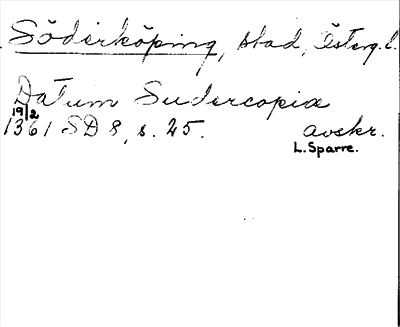 Söderköping, stad, Österg. l.
Datum Sudercopia
19/2
1361 SD 8, s. 25. avskr.
L. Sparre.